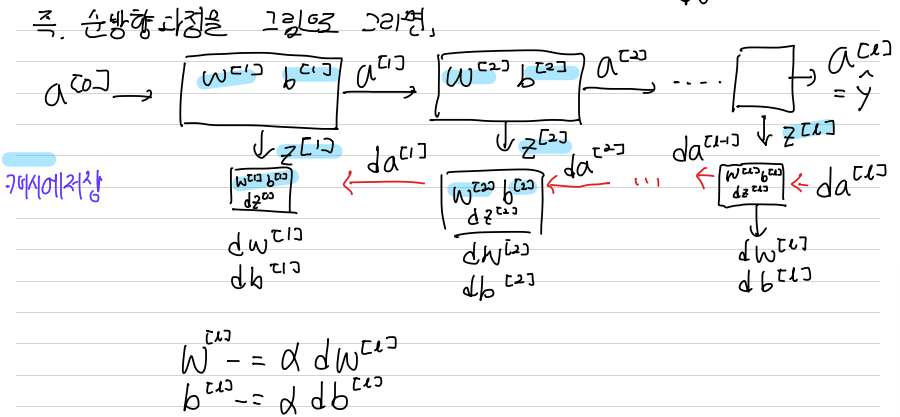 즉. 순방향 과정을 그림으로 그리면,
a[0] → w[1] b[1] a[1] → w[2] b[2] a[2] → ····· → a[l]
= ŷ
z[1] z[2] z[l]
da[1] da[2] ... da[l-1] da[l]
캐시에저장
w[1] b[1] w[2] b[2] w[l] b[l]
dz[1] dz[2] dz[l]
dw[1] dw[2] dw[l]
db[1] db[2] db[l]
W[l] -= α dw[l]
b[l] -= α db[l]